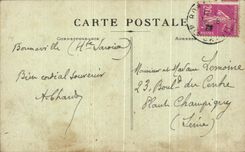 CARTE POSTALE
CORRESPONDANCE
ADRESSE
Bonneville (Hte Savoie)
Bien cordial souvenir
A. Chardon
Monsieur et Madame Lemoine
23. Bould du Centre
Haut Champigny
(Seine)